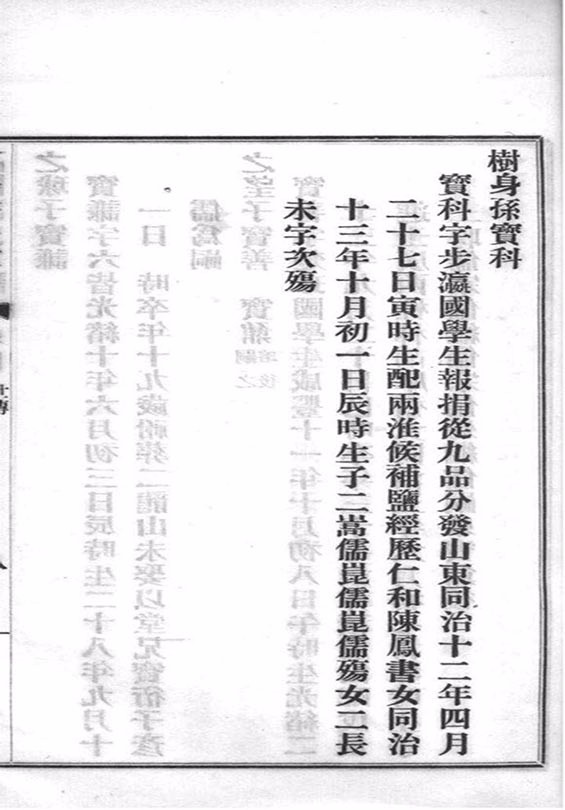 樹身孫寶科
寶科字步瀛國學生報捐從九品分發山東同治十二年四月
二十七日寅時生配兩淮候補鹽經歷仁和陳鳳書女同治
十三年十月初一日辰時生子二嵩儒崑儒崑儒殤女二長
未字次殤